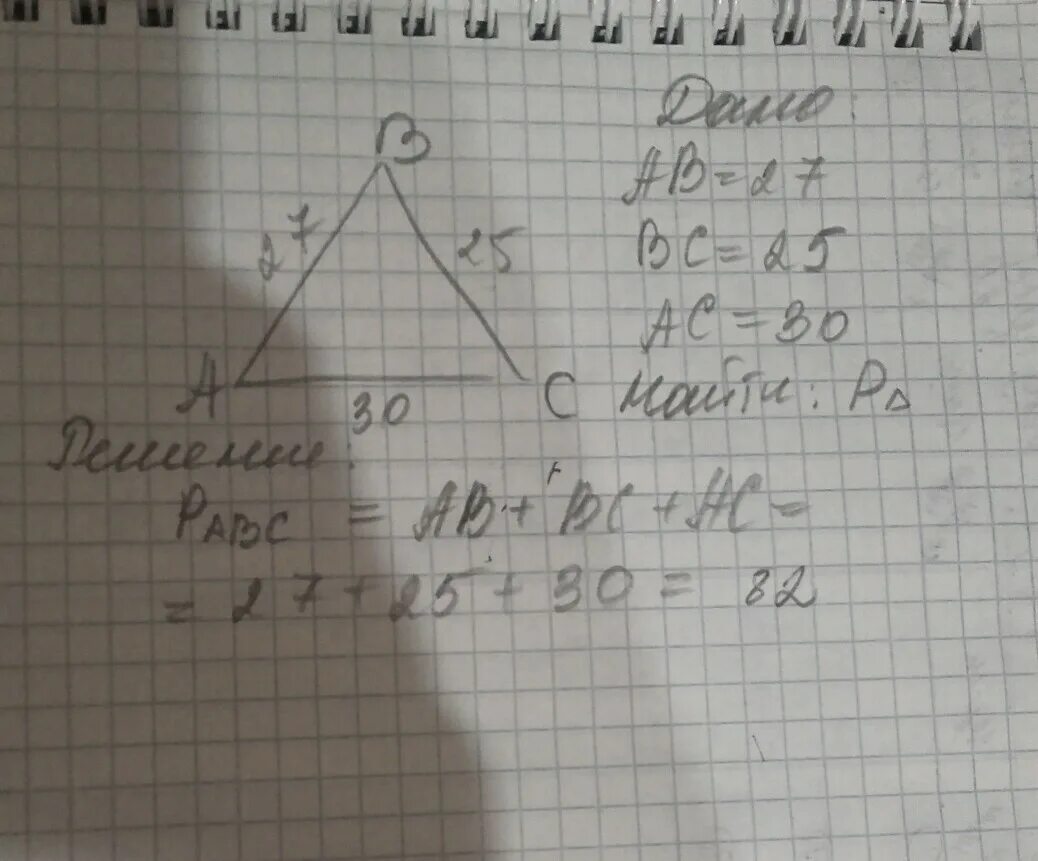 B
27
25
A
30
C
Дано:
AB=27
BC=25
AC=30
Найти: P△
Решение:
PABC = AB+ BC+AC=
= 27+25+30= 82